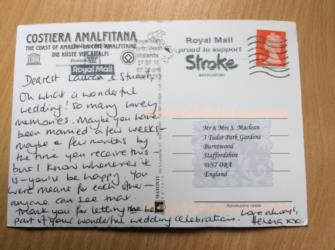 COSTIERA AMALFITANA
THE COAST OF AMALFI - LA CÔTE AMALFITAINE
DIE KÜSTE VON AMALFI
Royal Mail
Royal Mail
proud to support
Stroke
ASSOCIATION
Dearest Laura &
Oh what a wonderful
wedding! So many lovely
memories. Maybe you have
been married a few weeks -
maybe a few months by
the time you receive this -
but I know whenever it
is - you'll be happy. You
were meant for each other -
anyone can see that.
Thank you for letting me be
part of your wonderful wedding celebrations.
Love always,
Helena xxx
Mr & Mrs S. Maclean
3 Tudor Park Gardens
Burntwood
Staffordshire
WS7 0RX
England